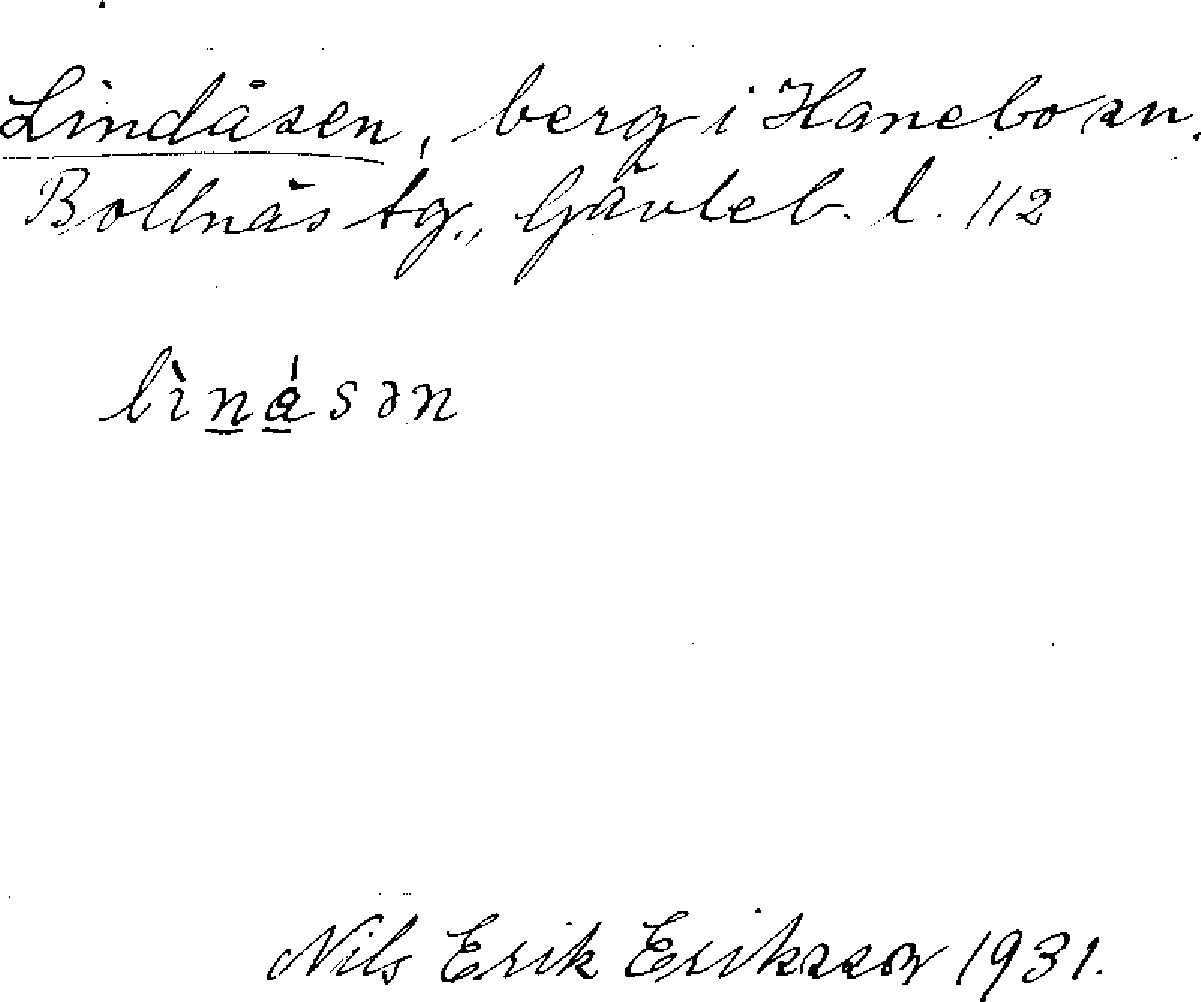 Lindåsen, berg i Hanebo sn.
Bollnäs tg., Gävleb. l. 112
lìnåsən
Nils Erik Eriksson 1931.